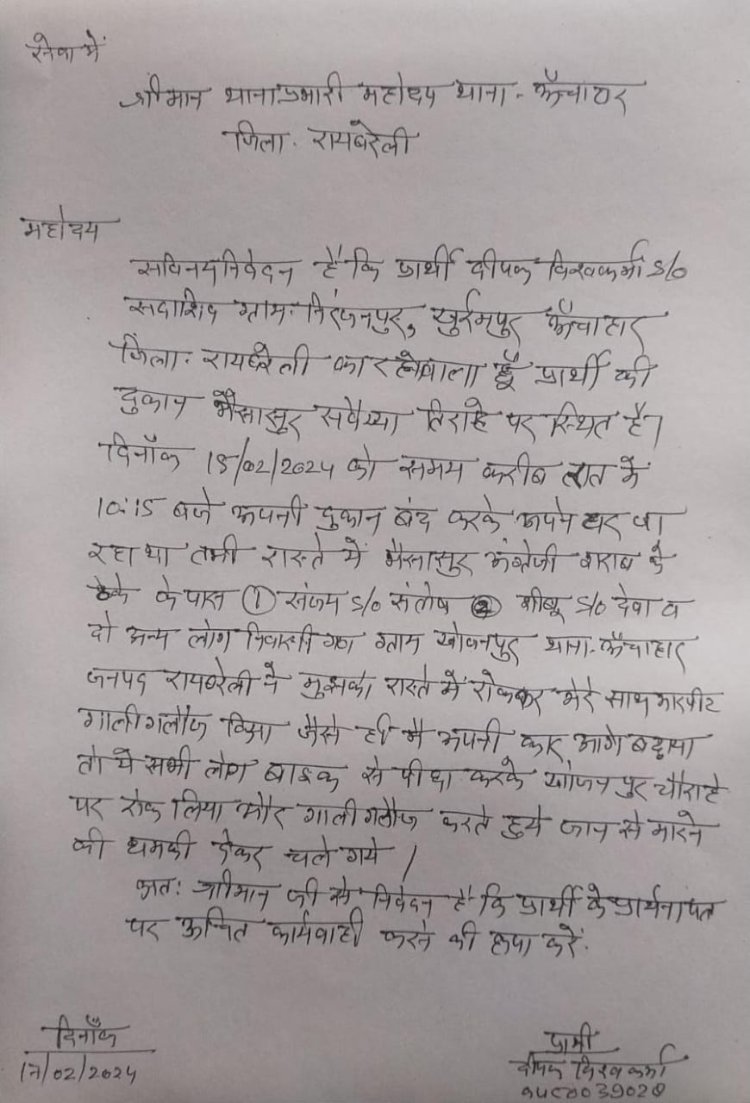 सेवा में
श्रीमान थाना प्रभारी महोदय थाना - ऊँचाहार
जिला - रायबरेली
महोदय
सविनय निवेदन है कि प्रार्थी दीपक विश्वकर्मा S/o
सदाशिव ग्राम- निरंजनपुर, खुर्रमपुर ऊँचाहार
जिला- रायबरेली का रहने वाला हूँ प्रार्थी की
दुकान भैंसासुर सवैय्या तिराहे पर स्थित है।
दिनाँक 15/02/2024 को समय करीब रात के
10:15 बजे अपनी दुकान बंद करके अपने घर जा
रहा था तभी रास्ते में भैंसासुर अंग्रेजी शराब के
ठेके के पास ① संजय S/o संतोष ② शीबू S/o देवा व
दो अन्य लोग निवासी गण ग्राम खोजनपुर थाना-ऊँचाहार
जनपद रायबरेली ने मुझको रास्ते में रोककर मेरे साथ मारपीट
गाली गलौज किया जैसे ही मै अपनी कार आगे बढ़ाया
तो ये सभी लोग बाइक से पीछा करके खोजनपुर चौराहे
पर रोक लिया और गाली गलौज करते हुये जान से मारने
की धमकी देकर चले गये।
अतः श्रीमान जी से निवेदन है कि प्रार्थी के प्रार्थनापत्र
पर उचित कार्यवाही करने की कृपा करें.
दिनाँक
17/02/2024
प्रार्थी
दीपक विश्वकर्मा